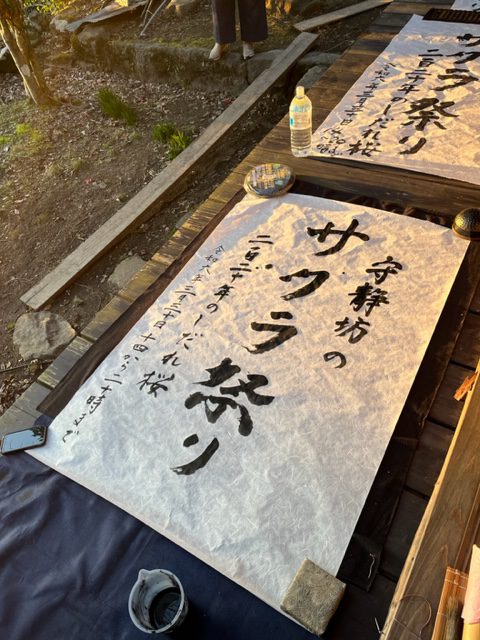 守静坊の
サクラ祭り
二百二十年のしだれ桜
令和八年三月三十日十四から二十時まで
サクラ祭り
二百二十年のしだれ桜